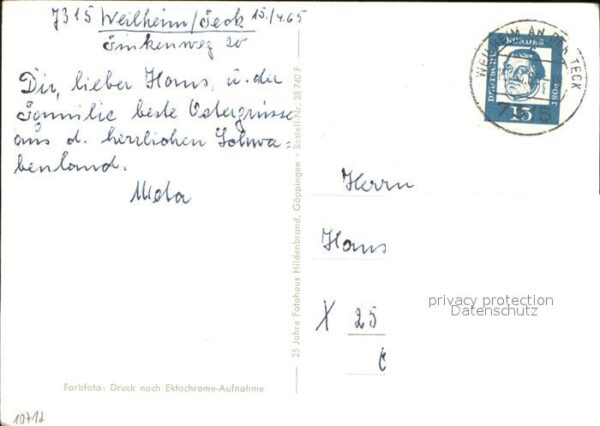 7315 Weilheim/Teck 15./4.65
Finkenweg 20
Dir, lieber Hans, u. der
Familie beste Ostergrüsse
aus d. herrlichen Schwa-
benland.
Meta
25 Jahre Fotohaus Hildenbrand, Göppingen • Bestell-Nr. 38740 F
Farbfoto: Druck nach Ektachrome-Aufnahme
10712
WEILHEIM AN DER TECK
DEUTSCHE BUNDESPOST
15
Herrn
Hans
X 25
privacy protection
Datenschutz